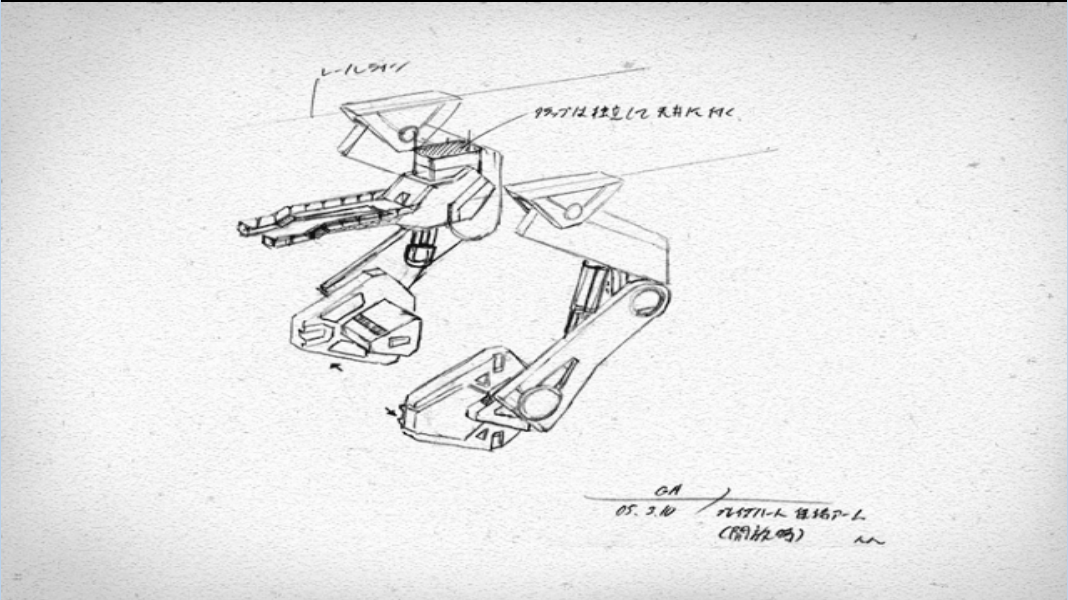 レールライン
クラップは独立して天井に付く
GA
05.3.10 ブレイブハート 係留アーム
(開放時)